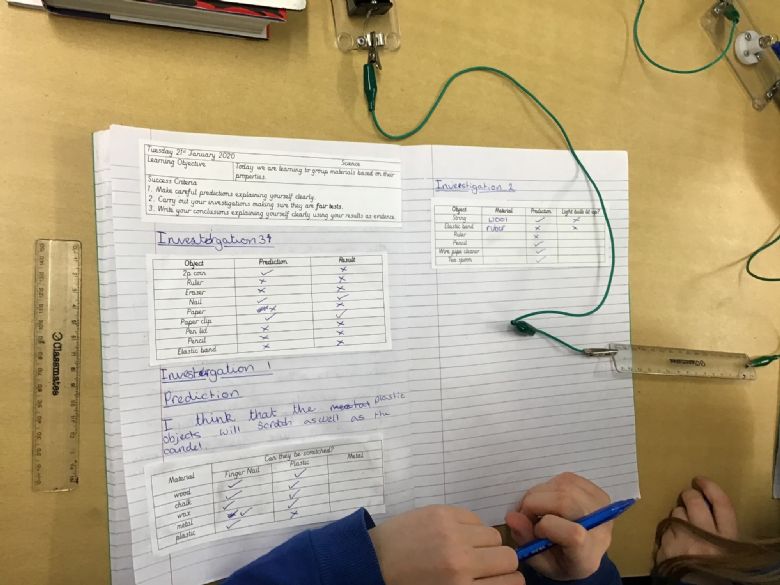 Tuesday 21st January 2020
Science
Learning Objective Today we are learning to group materials based on their properties.
Success Criteria
1. Make careful predictions explaining yourself clearly.
2. Carry out your investigations making sure they are fair tests.
3. Write your conclusions explaining yourself clearly using your results as evidence.
Investergation 3
Object Prediction Result
2p coin ✓ ×
Ruler × ×
Eraser × ×
Nail ✓ ✓
Paper × ×
Paper clip ✓ ✓
Pen lid × ×
Pencil × ×
Elastic band × ×
Investergation 1
Prediction
I think that the plastic
objects will scratch aswell as the
candel.
Can they be scratched?
Material Finger Nail Plastic Metal
wood ✓ ✓
chalk ✓ ✓
wax ✓ ✓
metal ✓ ×
plastic
Investigation 2
Object Material Prediction Light bulb lit up?
String wool ✓ ×
Elastic band ruber × ×
Ruler ×
Pencil ✓
Wire pipe cleaner ✓
Tea spoon ✓
Classmates
Classmates